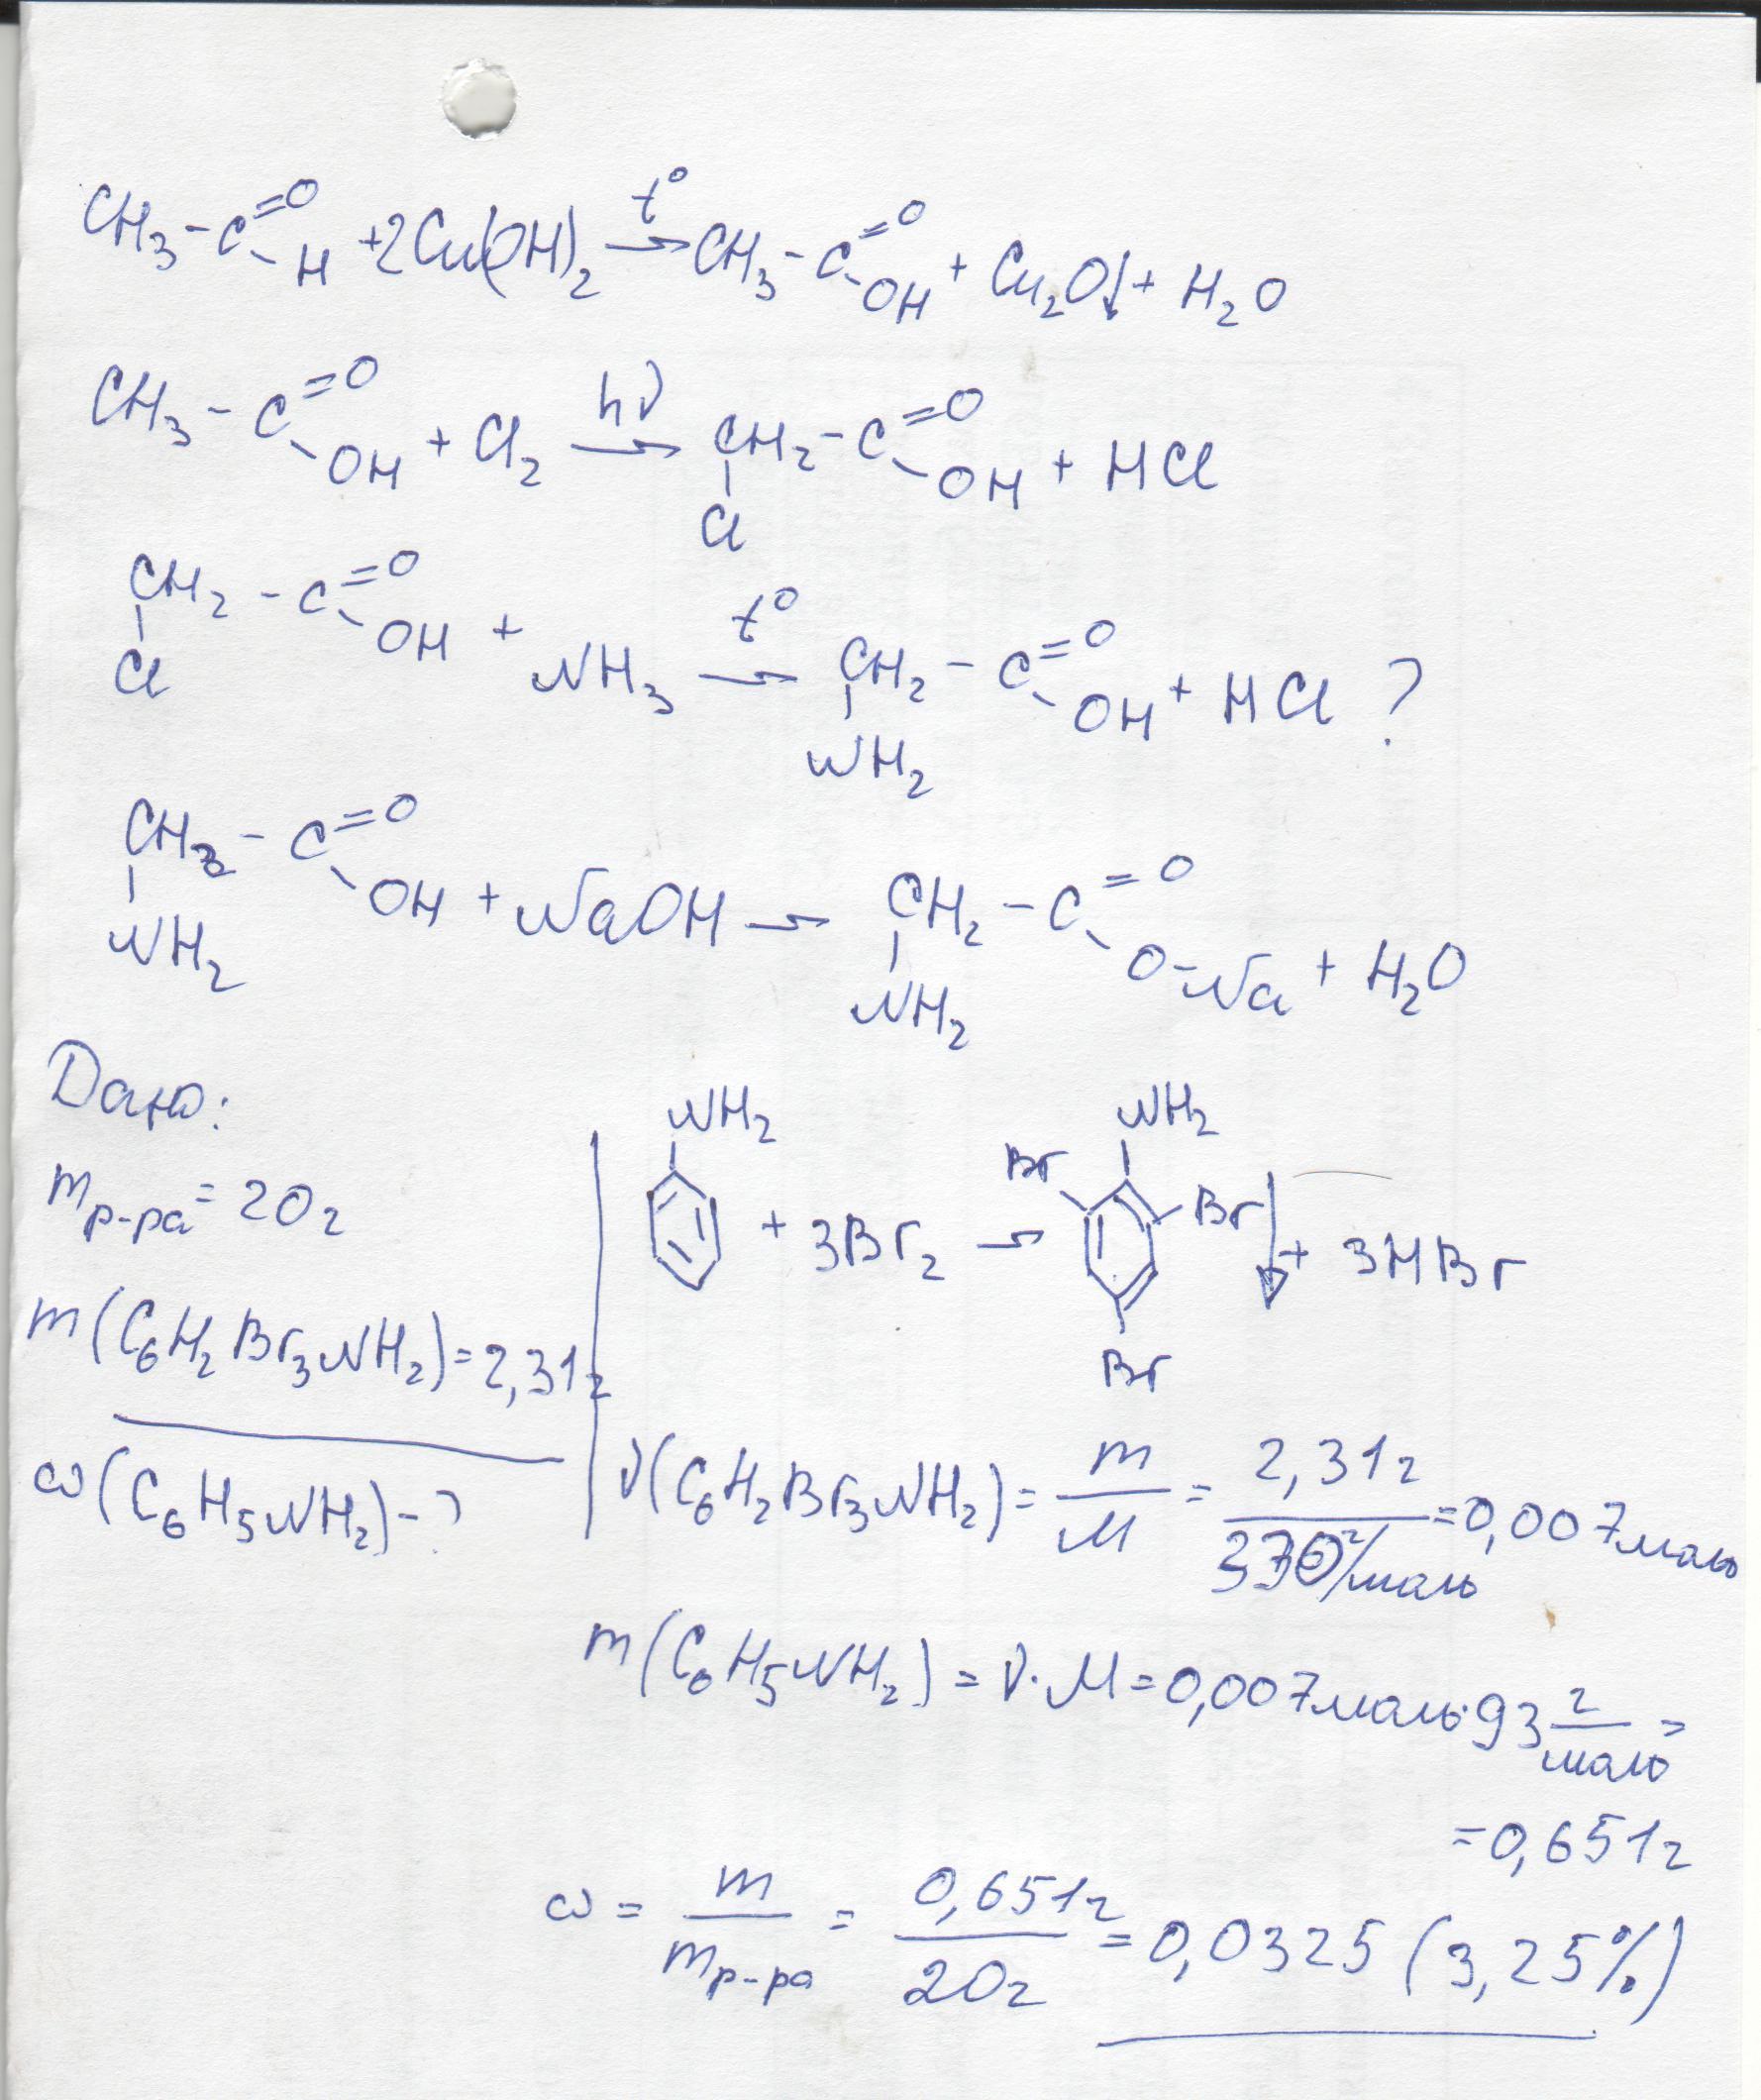 CH₃-C=O-H +2Cu(OH)₂ →t° CH₃-C=O-OH + Cu₂O↓ + H₂O
CH₃-C=O-OH + Cl₂ →hν CH₂-C=O-OH + HCl
Cl
CH₂-C=O-OH + NH₃ →t° CH₂-C=O-OH + HCl ?
Cl NH₂
CH₂-C=O-OH + NaOH → CH₂-C=O-O-Na + H₂O
NH₂ NH₂
Дано:
mр-ра = 20г
m(C₆H₂Br₃NH₂)=2,31г
ω(C₆H₅NH₂)-?
NH₂ NH₂
Br
+ 3Br₂ → Br ↓ + 3HBr
Br
ν(C₆H₂Br₃NH₂) = m/M = 2,31г/330г/моль = 0,007моль
m(C₆H₅NH₂) = ν·M = 0,007моль·93 г/моль =
= 0,651г
ω = m/mр-ра = 0,651г/20г = 0,0325 (3,25%)